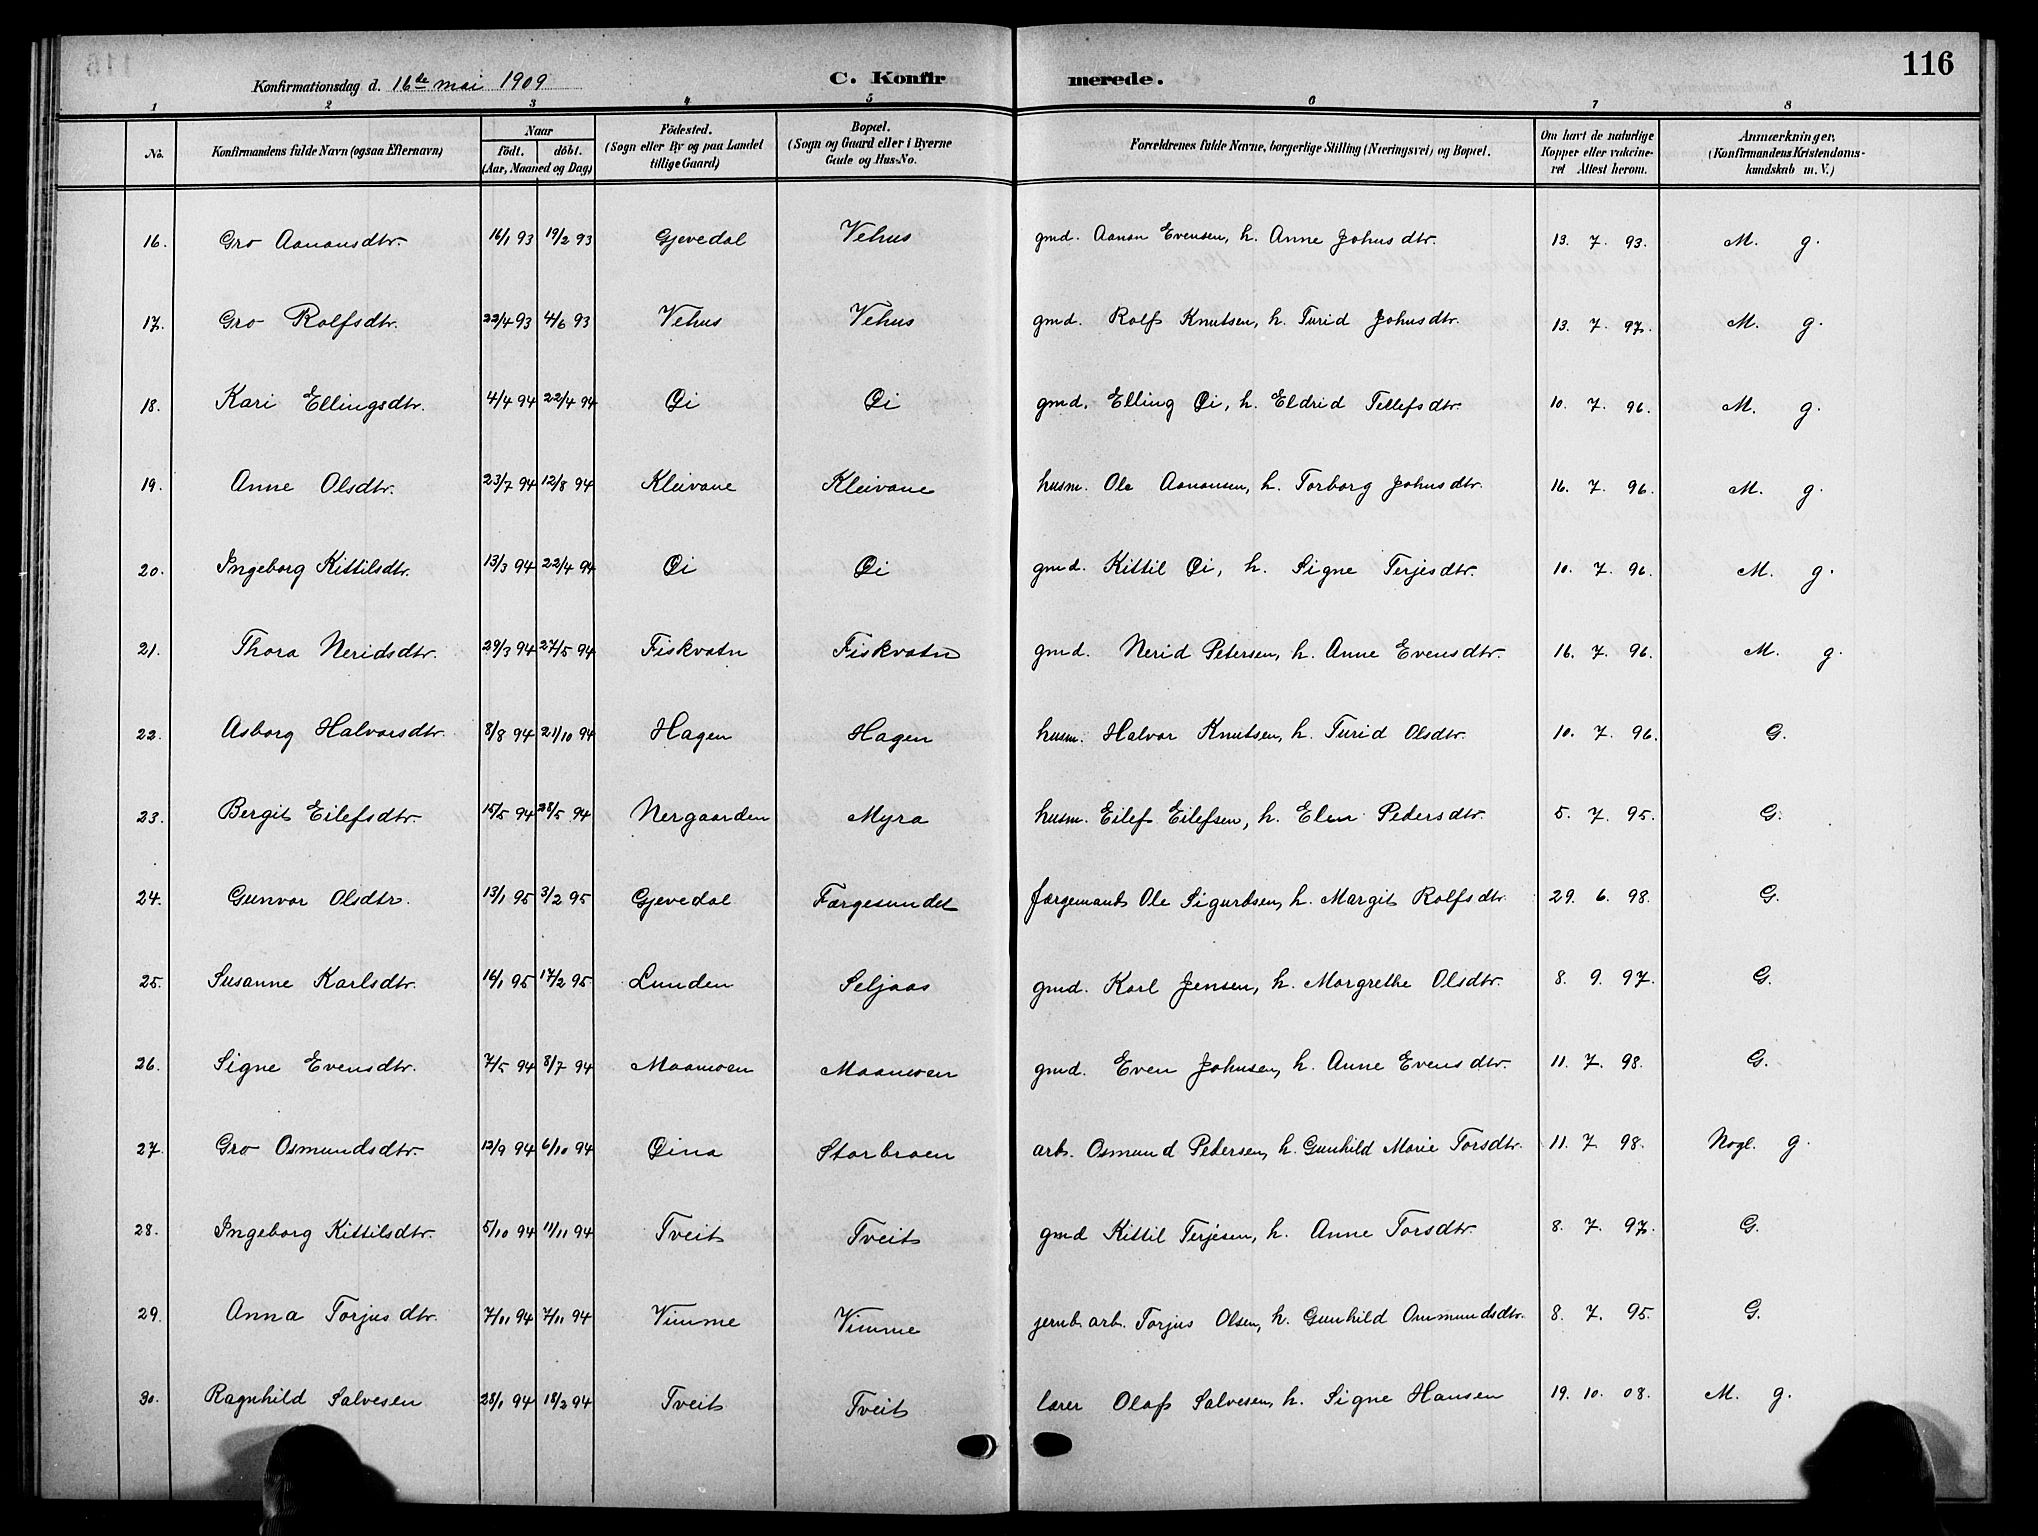 116
Konfirmationsdag d. 16de mai 1909 C. Konfirmerede.
1 2 3 4 5 6 7 8
No. Konfirmandens fulde Navn (ogsaa Efternavn) Naar födt. döbt. (Aar, Maaned og Dag) Födested. (Sogn eller By og paa Landet tillige Gaard) Bopæl. (Sogn og Gaard eller i Byerne Gade og Hus-No. Forældrenes fulde Navne, borgerlige Stilling (Næringsvei) og Bopæl. Om havt de naturlige Kopper eller vakcineret Attest herom. Anmærkninger, (Konfirmandens Kristendomskundskab m. V.)
16. Gro Aanonsdtr. 16/1 93 19/2 93 Gjevedal Vehus gmd. Aanon Evensen, h. Anne Johnsdtr. 13. 7. 93. M. g.
17. Gro Rolfsdtr. 22/4 93 4/6 93 Vehus Vehus gmd. Rolf Knutsen, h. Turid Johnsdtr. 13. 7. 97. M. g.
18. Kari Ellingsdtr. 4/4 94 22/4 94 Øi Øi gmd. Elling Øi, h. Eldrid Tellefsdtr. 10. 7. 96. M. g.
19. Anne Olsdtr. 23/7 94 12/8 94 Kleivane Kleivane husm. Ole Aanonsen, h. Torborg Johnsdtr. 16. 7. 96. M. g.
20. Ingeborg Kittilsdtr. 13/3 94 22/4 94 Øi Øi gmd. Kittil Øi, h. Signe Terjesdtr. 10. 7. 96. M. g.
21. Thora Neridsdtr. 29/3 94 27/5 94 Fiskvatn Fiskvatn gmd. Nerid Petersen, h. Anne Evensdtr. 16. 7. 96. M. g.
22. Asborg Halvorsdtr. 8/8 94 21/10 94 Hagen Hagen husm. Halvor Knutsen, h. Turid Olsdtr. 10. 7. 96. G.
23. Bergit Eilefsdtr. 15/5 94 28/5 94 Nergaarden Myra husm. Eilef Eilefsen, h. Elen Pedersdtr. 5. 7. 95. G.
24. Gunvor Olsdtr. 13/1 95 3/2 95 Gjevedal Færgesundet færgemand Ole Sigurdsen, h. Margit Rolfsdtr. 29. 6. 98. G.
25. Susanne Karlsdtr. 16/1 95 17/2 95 Lunden Seljaas gmd. Karl Jensen, h. Margrethe Olsdtr. 8. 9. 97. G.
26. Signe Evensdtr. 7/5 94 8/7 94 Maamoen Maamoen gmd. Even Johnsen, h. Anne Evensdtr. 11. 7. 98. G.
27. Gro Osmundsdtr. 12/9 94 6/10 94 Øina Storbroen arb. Osmund Pedersen, h. Gunhild Marie Torsdtr. 11. 7. 98. Nogl. g.
28. Ingeborg Kittilsdtr. 5/10 94 11/11 94 Tveit Tveit gmd Kittil Terjesen, h. Anne Torsdtr. 8. 7. 97. G.
29. Anna Torjusdtr. 7/01 94 7/11 94 Vimme Vimme jernb. arb. Torjus Olsen, h. Gunhild Ommundsdtr. 8. 7. 95. G.
30. Ragnhild Salvesen 28/1 94 18/2 94 Tveit Tveit lærer Olaf Salvesen, h. Signe Hansen 19. 10. 08. M. g.